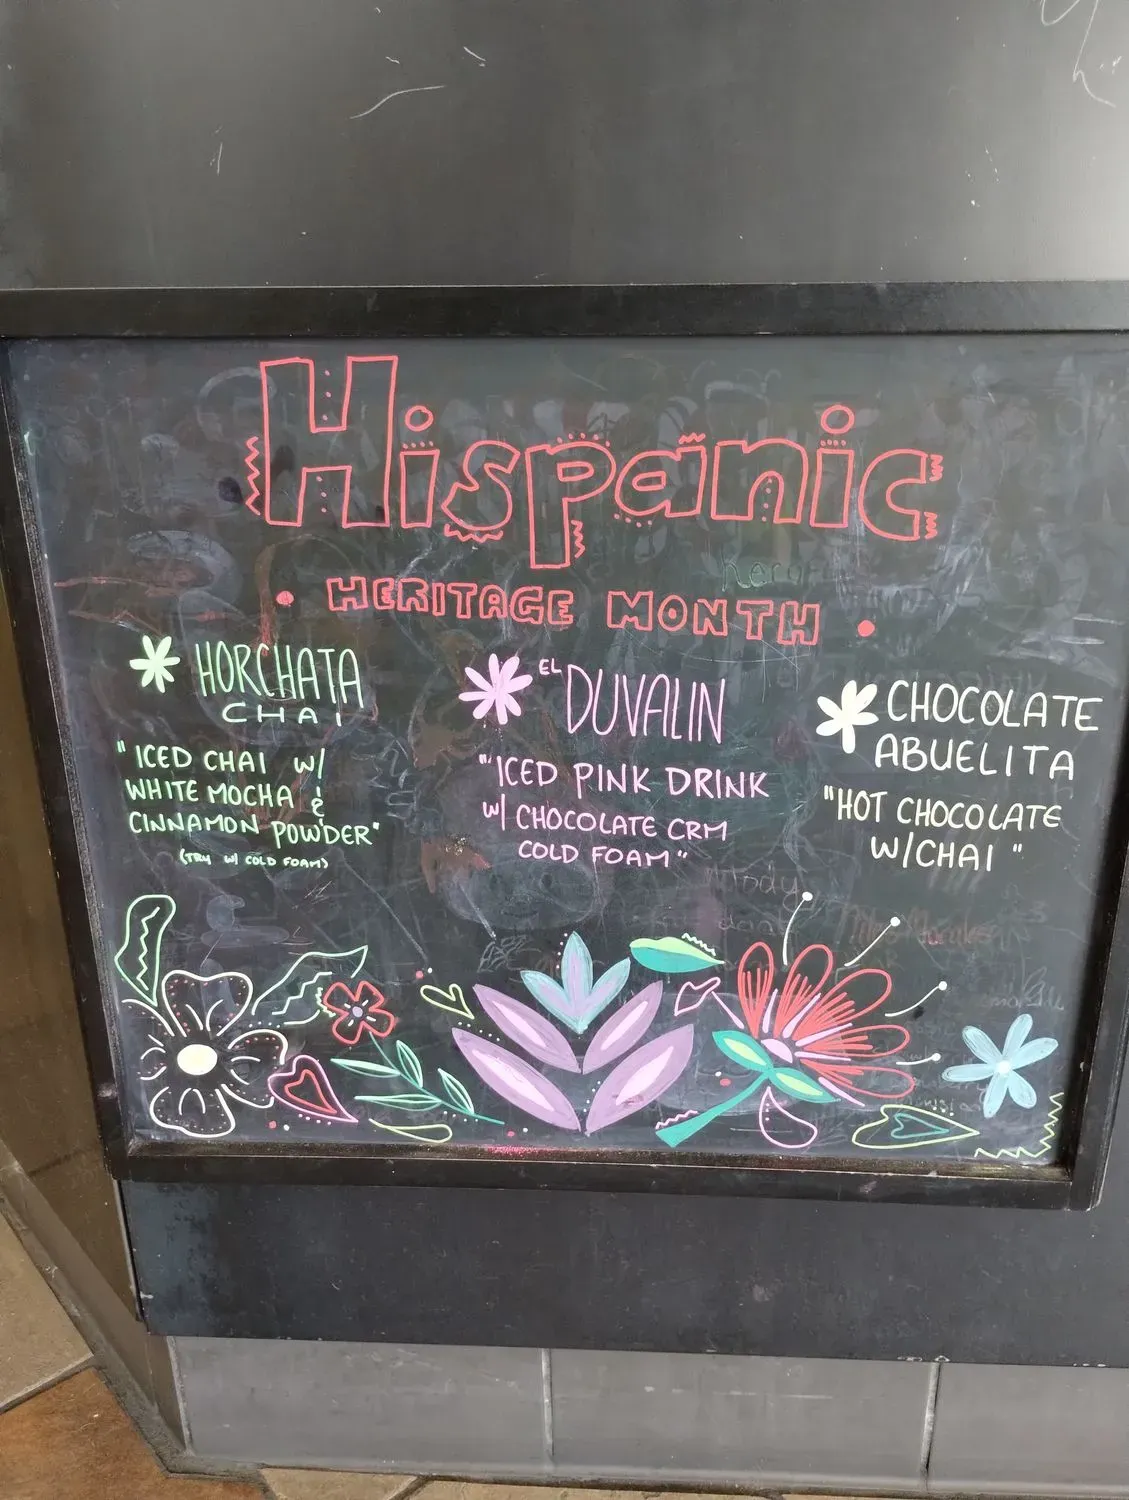 Hispanic
• HERITAGE MONTH •
HORCHATA
CHAI
"ICED CHAI W/
WHITE MOCHA &
CINNAMON POWDER"
(TRY W/ COLD FOAM)
EL DUVALIN
"ICED PINK DRINK
W/ CHOCOLATE CRM
COLD FOAM"
CHOCOLATE
ABUELITA
"HOT CHOCOLATE
W/CHAI"